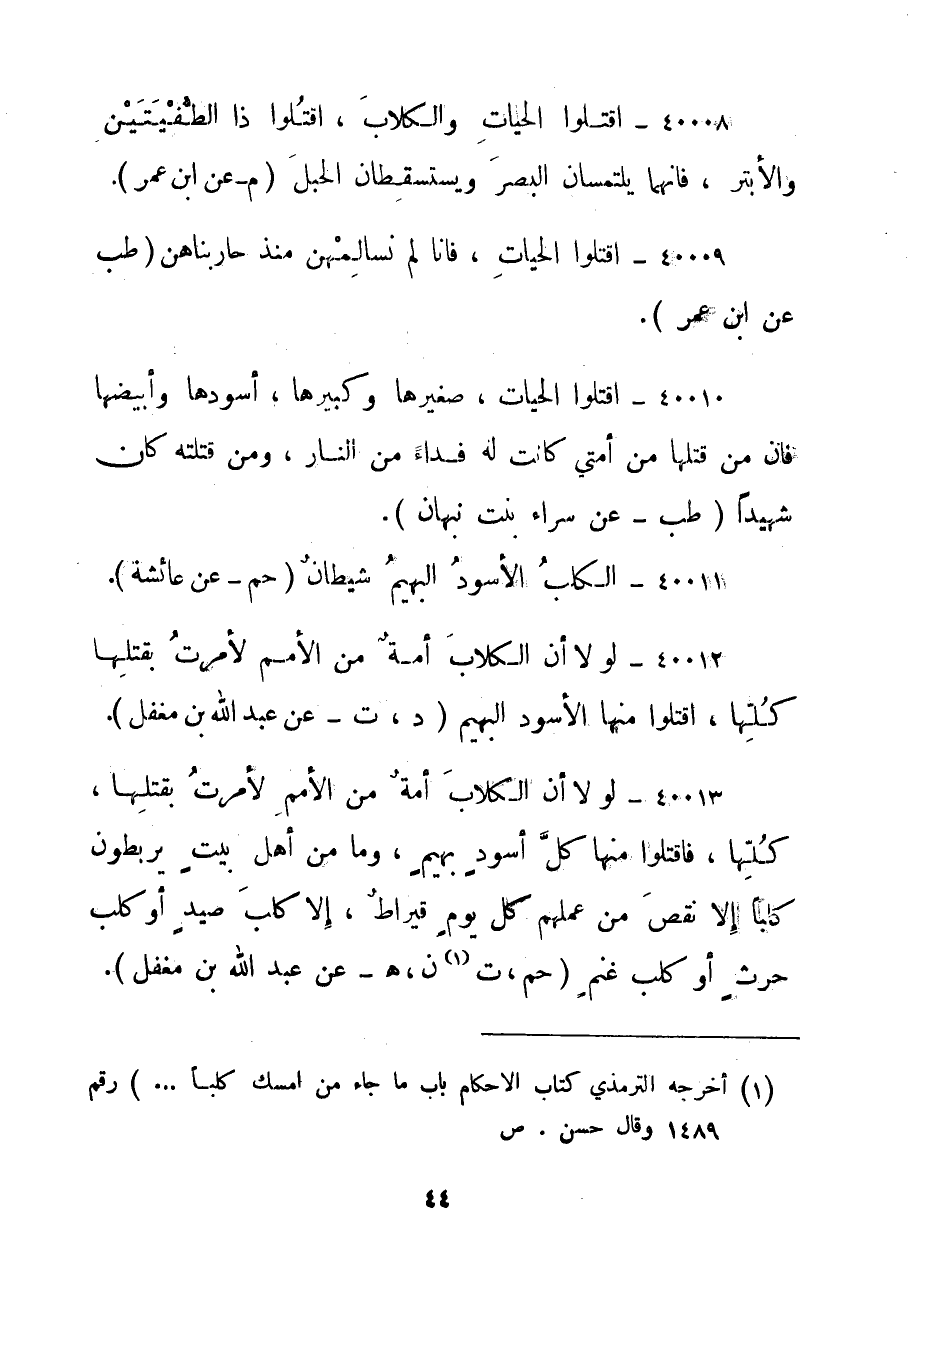 ٤٠٠٠٨ ـ اقتـلوا الحياتِ والـكلابَ ، اقتُلوا ذا الطُّفْيَتَيْنِ
والأبتر ، فانهما يلتمسان البصرَ ويستسقـِطان الحبلَ ( م-عن ابن عمر ).
٤٠٠٠٩ ـ اقتلوا الحياتِ ، فانا لم نسالـِمْهن منذ حاربناهن ( طب
عن ابن عمر ).
٤٠٠١٠ ـ اقتلوا الحيات ، صغيرها وكبيرها ، أسودها وأبيضها
فان من قتلها من أمتي كانت له فـداءً من النـار ، ومن قتلته كان
شهيداً ( طب ـ عن سراء بنت نبهان ).
٤٠٠١١ ـ الـكلبُ الأسودُ البهيمُ شيطانٌ ( حم ـ عن عائشة ).
٤٠٠١٢ ـ لو لا أن الـكلابَ أمـةٌ من الأمـم لأمرتُ بقتلـِهـا
كـُلـِّها ، اقتلوا منها الأسود البهيم ( د ، ت ـ عن عبد الله بن مغفل ).
٤٠٠١٣ ـ لو لا أن الـكلابَ أمةٌ من الأممِ لأمرتُ بقتلـِهـا ،
كـُلـِّها ، فاقتلوا منها كلَّ أسودٍ بهيمٍ ، وما من أهل بيتٍ يربطون
كلباً إلا نقصَ من عملهم كل يومٍ قيراطٌ ، إلا كلبَ صيدٍ أو كلب
حرثٍ أو كلب غنمٍ ( حم ، ت (١) ن ، ه ـ عن عبد الله بن مغفل ).
(١) أخرجه الترمذي كتاب الاحكام باب ما جاء من امسك كلبـاً ... ) رقم
١٤٨٩ وقال حسن . ص
٤٤